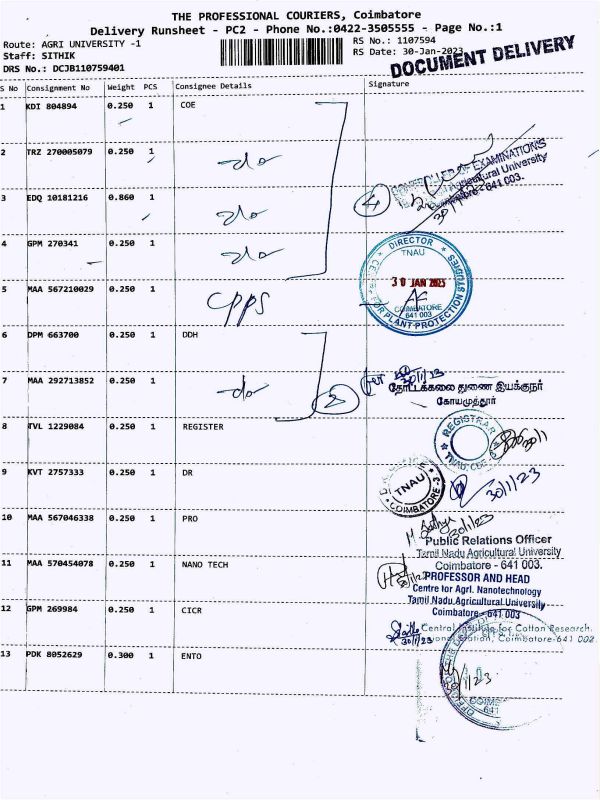 THE PROFESSIONAL COURIERS, Coimbatore
Delivery Runsheet - PC2 - Phone No.:0422-3505555 - Page No.:1
Route: AGRI UNIVERSITY -1
Staff: SITHIK
DRS No.: DCJB110759401
RS No.: 1107594
RS Date: 30-Jan-2023
DOCUMENT DELIVERY
S No Consignment No Weight PCS Consignee Details Signature
1 KDI 804894 0.250 1 COE
2 TRZ 270005079 0.250 1 do
CONTROLLER OF EXAMINATIONS
Agricultural University
Coimbatore - 641 003.
3 EDQ 10181216 0.860 1 do
4
4 GPM 270341 0.250 1 do
DIRECTOR
TNAU
CENTRE FOR PLANT PROTECTION STUDIES
30 JAN 2023
COIMBATORE
641 003
5 MAA 567210029 0.250 1 CPPS
6 DPM 663700 0.250 1 DDH
7 MAA 292713852 0.250 1 do
2
30/1/23
தோட்டக்கலை துணை இயக்குநர்
கோயமுத்தூர்
8 TVL 1229084 0.250 1 REGISTER
REGISTRAR
TNAU, CBE-3
9 KVT 2757333 0.250 1 DR
TNAU
COIMBATORE-3
30/1/23
10 MAA 567046338 0.250 1 PRO
30/1/23
Public Relations Officer
Tamil Nadu Agricultural University
Coimbatore - 641 003.
11 MAA 570454078 0.250 1 NANO TECH
PROFESSOR AND HEAD
Centre for Agrl. Nanotechnology
Tamil Nadu Agricultural University
Coimbatore - 641 003
12 GPM 269984 0.250 1 CICR
Central Institute for Cotton Research
Station, Coimbatore-641 002.
30/1/23
13 PDK 8052629 0.300 1 ENTO
641